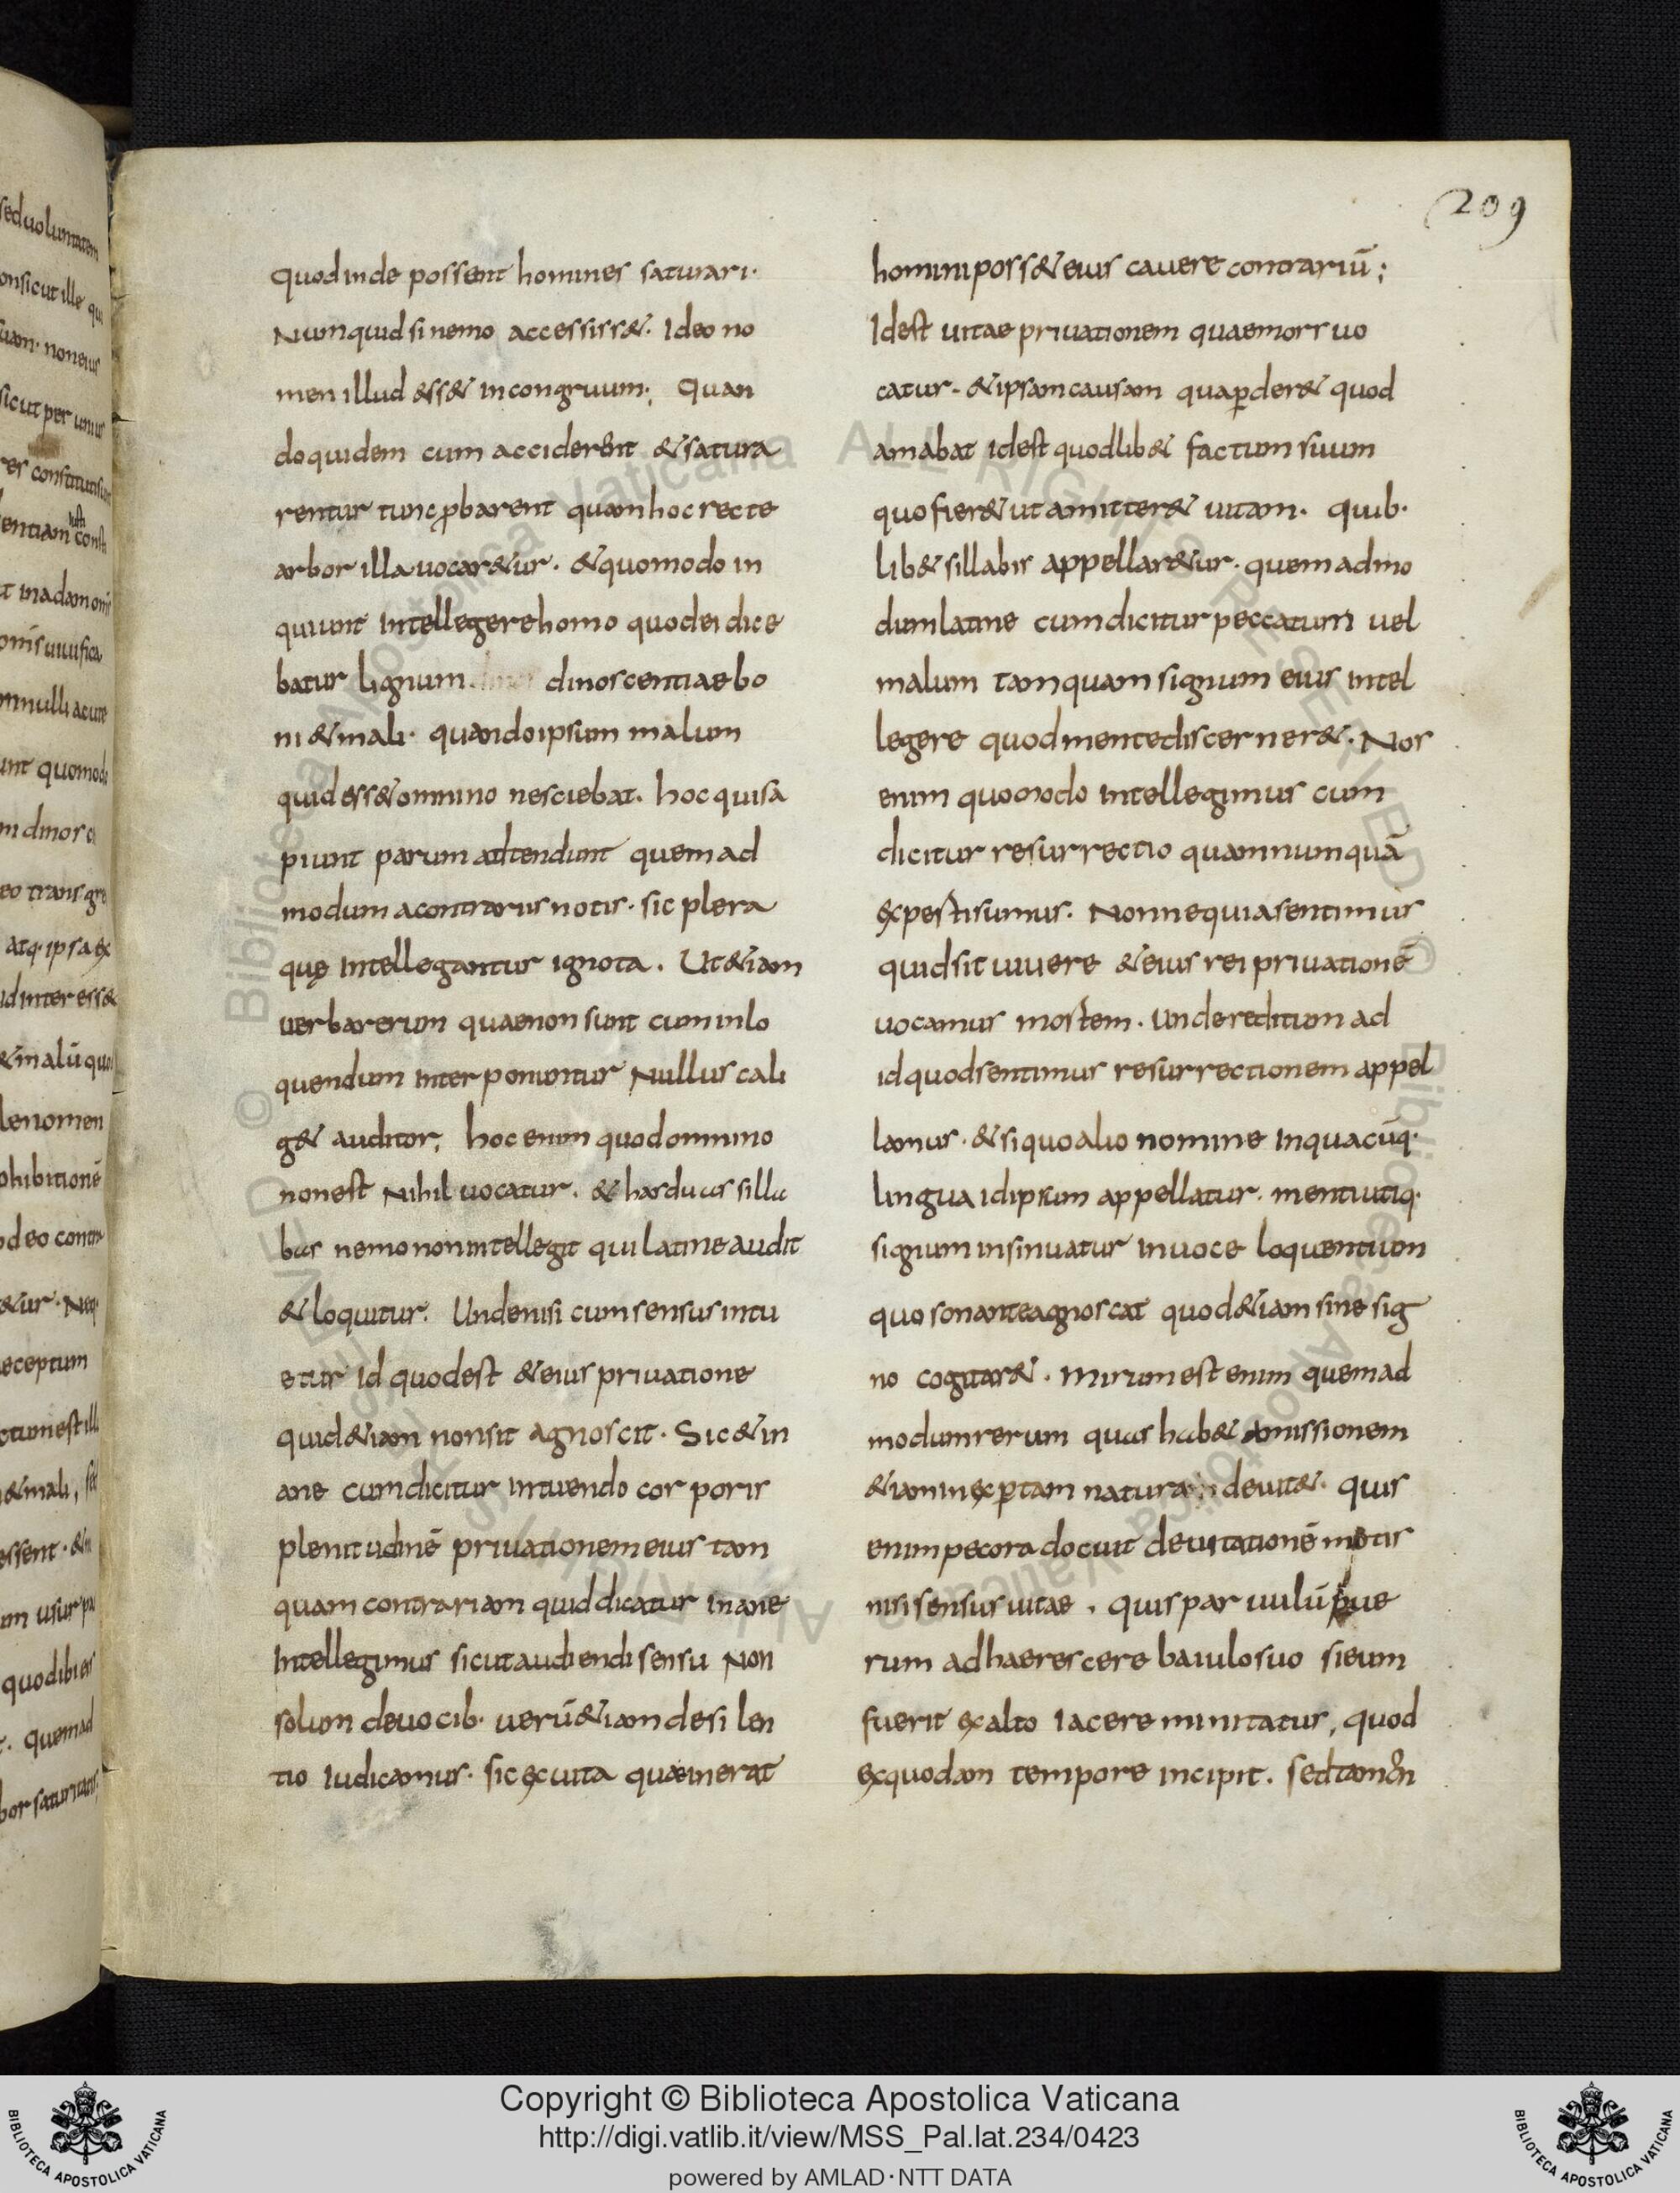 209
quod inde possent homines saturari·
Numquid si nemo accessiss&. Ideo no
men illud ess& incongruum; Quan
doquidem cum acciderent & satura
rentur tunc ꝓbarent quam hoc recte
arbor illa uocar&ur. & quomodo in
quiunt intellegere homo quod ei dice
batur lignum dinoscentiae bo
ni & mali· quando ipsum malum
quid ess& omnino nesciebat. hoc qui sa
piunt parum adtendunt quemad
modum a contrariis notis. sic plera
quę intellegantur ignota. Ut &iam
uerba rerum quae non sunt cum in lo
quendum interponuntur Nullus cali
g& auditor; hoc enim quod omnino
non est Nihil uocatur. & has duas silla
bas nemo non intellegit qui latine audit
& loquitur. Unde nisi cum sensus intu
etur id quod est & eius priuatione
quid &iam non sit agnoscit. Sic & in
ane cum dicitur intuendo corporis
plenitudinē priuationem eius tam
quam contrariam quid dicatur inane
Intellegimus sicut audiendi sensu Non
solum de uocib· uerū &iam de silen
tio iudicamus. sic ex uita quae inerat
homini poss& eius cauere contrariū;
Id est uitae priuationem quae mors uo
catur. & ipsam causam qua ꝑder& quod
amabat id est quodlib& factum suum
quo fier& ut amitter& uitam. quib·
lib& sillabis appellar&ur. quemadmo
dum latine cum dicitur peccatum uel
malum tamquam signum eius intel
legere quod mente discerner&. Nos
enim quomodo intellegimus cum
dicitur resurrectio quam numquā
experti sumus. Nonne quia sentimus
quid sit uiuere & eius rei priuationē
uocamus mortem. unde reditum ad
id quod sentimus resurrectionem appel
lamus. & si quo alio nomine in quacūq·
lingua id ipsum appellatur. menti utiq·
signum insinuatur in uoce loquentium
quo sonante agnoscat quod &iam sine sig
no cogitar&. Mirum est enim quemad
modum rerum quas hab& amissionem
&iam inexꝑtam natura deuit&. quis
enim pecora docuit deuitationē mortis
nisi sensus uitae. quis paruulū pue
rum adhaerescere baiulo suo si eum
fuerit ex alto iacere minitatus, quod
ex quodam tempore incipit. sed tamen
Copyright © Biblioteca Apostolica Vaticana
http://digi.vatlib.it/view/MSS_Pal.lat.234/0423
powered by AMLAD·NTT DATA